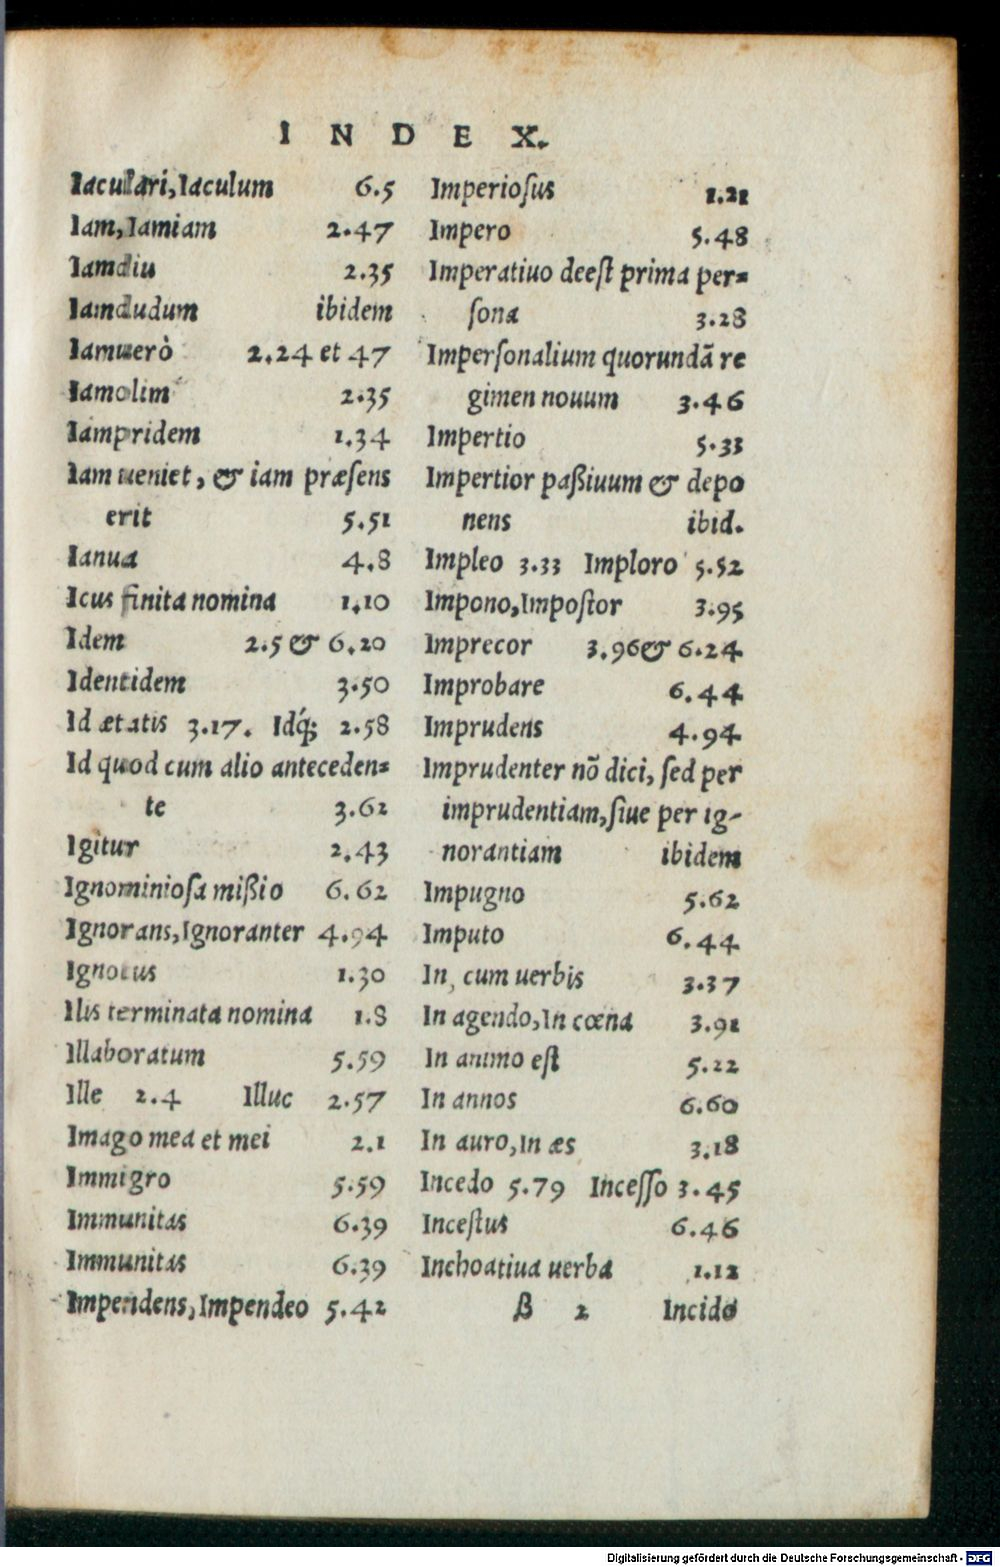 INDEX.
Iaculari, Iaculum 6.5
Iam, Iamiam 2.47
Iamdiu 2.35
Iamdudum ibidem
Iamuerò 2.24 et 47
Iamolim 2.35
Iampridem 1.34
Iam ueniet, & iam præsens
erit 5.51
Ianua 4.8
Icus finita nomina 1.10
Idem 2.5 & 6.20
Identidem 3.50
Id ætatis 3.17. Idq́; 2.58
Id quod cum alio anteceden=
te 3.62
Igitur 2.43
Ignominiosa mißio 6.62
Ignorans, Ignoranter 4.94
Ignotus 1.30
Ilis terminata nomina 1.8
Illaboratum 5.59
Ille 2.4 Illuc 2.57
Imago mea et mei 2.1
Immigro 5.59
Immunitas 6.39
Immunitas 6.39
Impendens, Impendeo 5.42
Imperiosus 1.21
Impero 5.48
Imperatiuo deest prima per=
sona 3.28
Impersonalium quorundã re
gimen nouum 3.46
Impertio 5.33
Impertior paßiuum & depo
nens ibid.
Impleo 3.33 Imploro 5.52
Impono, Impostor 3.95
Imprecor 3.96 & 6.24
Improbare 6.44
Imprudens 4.94
Imprudenter nõ dici, sed per
imprudentiam, siue per ig-
norantiam ibidem
Impugno 5.62
Imputo 6.44
In, cum uerbis 3.37
In agendo, In cœna 3.91
In animo est 5.22
In annos 6.60
In auro, in æs 3.18
Incedo 5.79 Incesso 3.45
Incestus 6.46
Inchoatiua uerba 1.12
ß 2 Incido
Digitalisierung gefördert durch die Deutsche Forschungsgemeinschaft - DFG